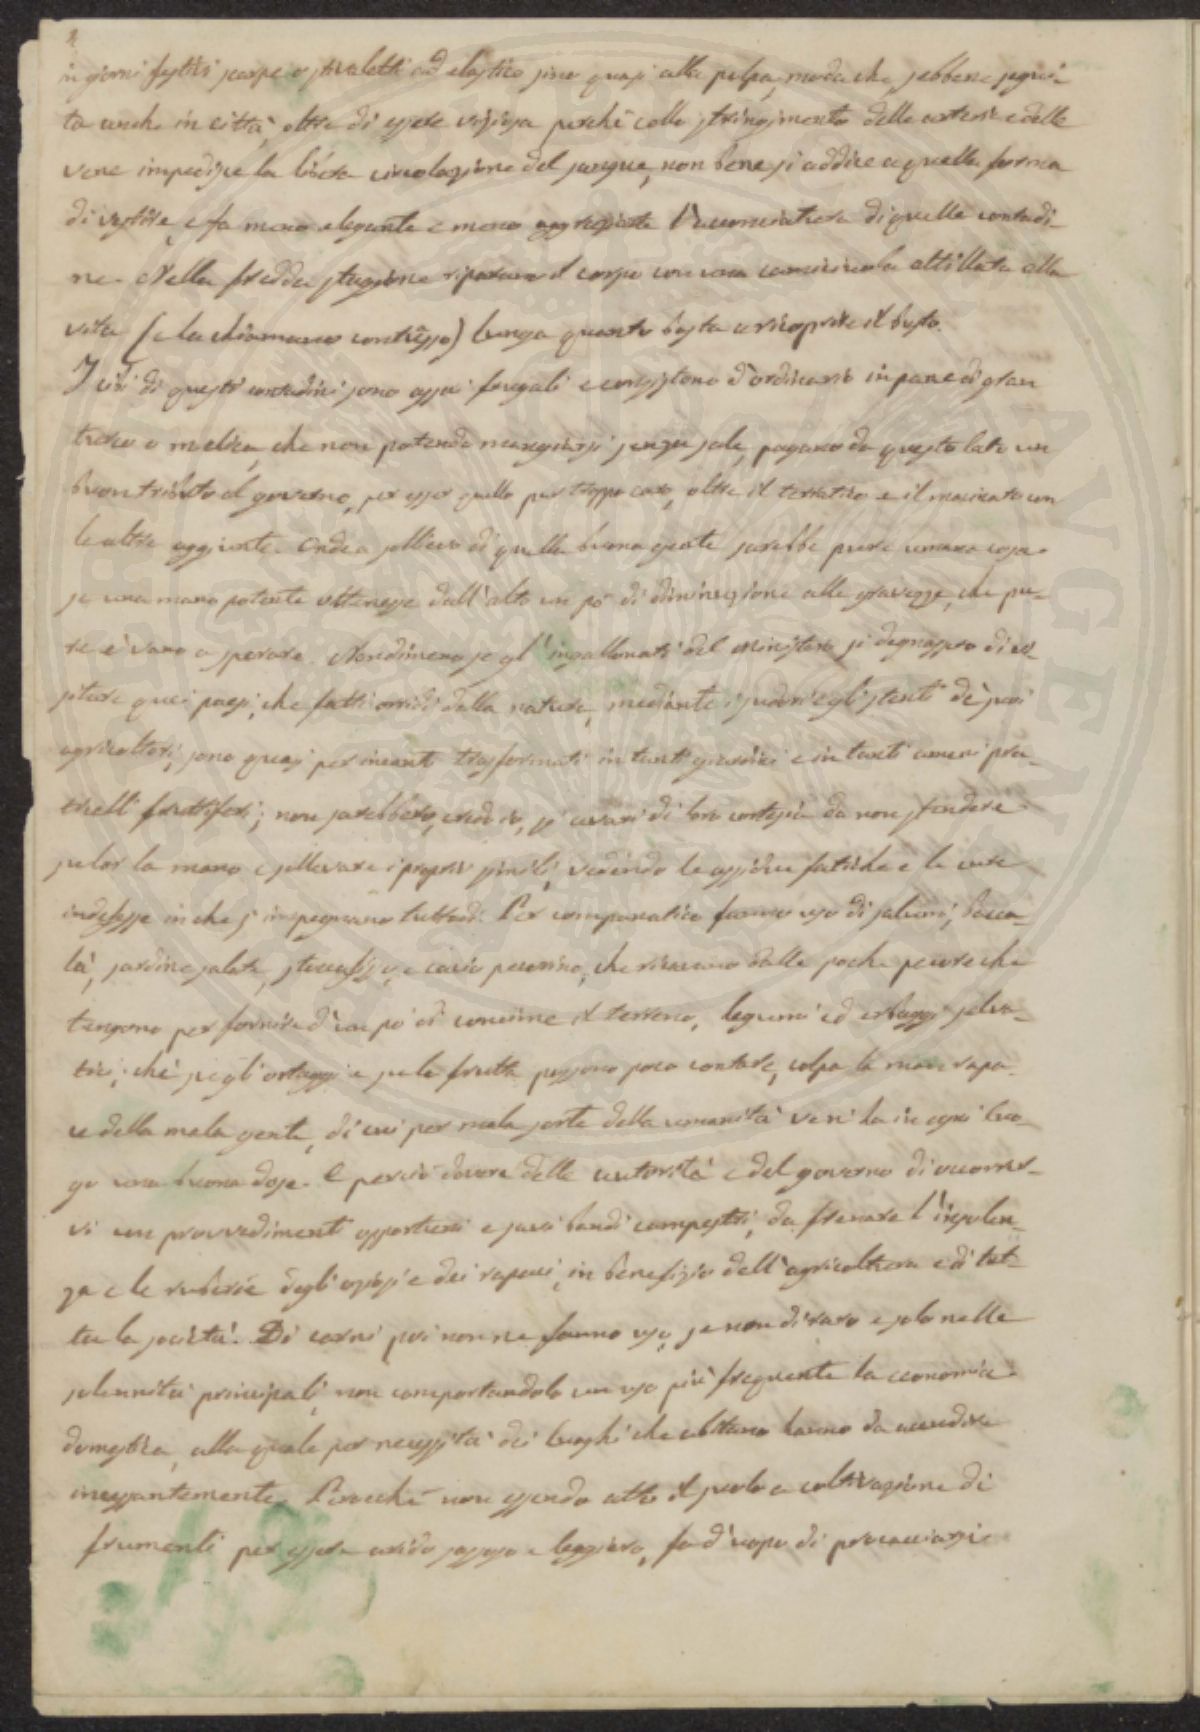 in giorni festivi scarpe o stivaletti ad elastico sino quasi alla polpa, moda che, sebbene segui-
ta anche in città, oltre di essere viziosa perchè collo stringimento delle arterie e delle
vene impedisce la libera circolazione del sangue, non bene si addice a quella forma
di vestire, e fa meno elegante e meno aggraziata l'acconciatura di quelle contadi-
ne. Nella fredda stagione riparano il corpo con una camiciuola attillata alla
vita (e la chiamano contrizzo) lunga quanto basta a ricoprire il busto.
I cibi di questi contadini sono assai frugali e consistono d'ordinario in pane di gran
turco o melica, che non potendo mangiarsi senza sale, pagano da questo lato un
buon tributo al governo, per esser quello pur troppo caro, oltre il testatico e il macinato con
le altre aggiunte. Onde a sollievo di quella buona gente sarebbe pure umana cosa
se una mano potente ottenesse dall'alto un pò di diminuzione alle gravezze, che pu-
re è vano a sperare. Nondimeno se gl'ingallonati del Ministero si degnassero di vi-
sitare quei paesi, che fatti orridi dalla natura, mediante i sudori e gli stenti de' suoi
agricoltori, sono quasi per incanto trasformati in tanti giardini e in tanti ameni pra-
ticelli fruttiferi; non sarebbero, credo io, sì avari di loro cortesia da non stendere
su lor la mano e sollevare i proprii simili, vedendo le assidue fatiche e le cure
indefesse in che s'impegnano tuttodì. Per companatico fanno uso di salumi, bacca-
là, sardine salate, stoccafisso, e cacio pecorino, che ricavano dalle poche pecore che
tengono per fornire d'un pò di concime il terreno, legumi ed erbaggi selva-
tici; chè su gli ortaggi e su le frutta possono poco contare, colpa la man rapa-
ce della mala gente, di cui per mala sorte della umanità ve n'ha in ogni luo-
go una buona dose. È perciò dovere delle autorità e del governo di accorrer-
vi con provvedimenti opportuni e savi bandi campestri, da frenare l'insolen-
za e le ruberie degli oziosi e dei rapaci, in benefizio dell'agricoltura e di tut-
ta la società. Di carni poi non ne fanno uso, se non di raro e solo nelle
solennità principali, non comportandolo un uso più frequente la economia
domestica, alla quale per necessità dei luoghi che abitano hanno da accudire
incessantemente. Perocchè non essendo atto il suolo a coltivazione di
frumenti per essere arido sassoso e leggiero, fa d'uopo di procacciarsi